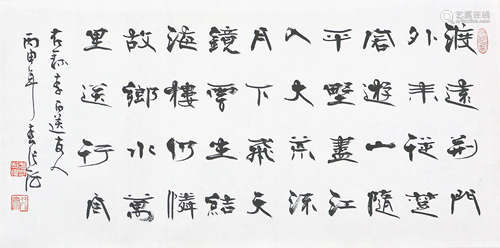 渡遠荊門
外来從楚
國遊山隨
平墅盡江
入大荒流
月下飛天
鏡雲生結
海樓仍憐
故鄉水萬
里送行舟
右録李白送友人
丙申年